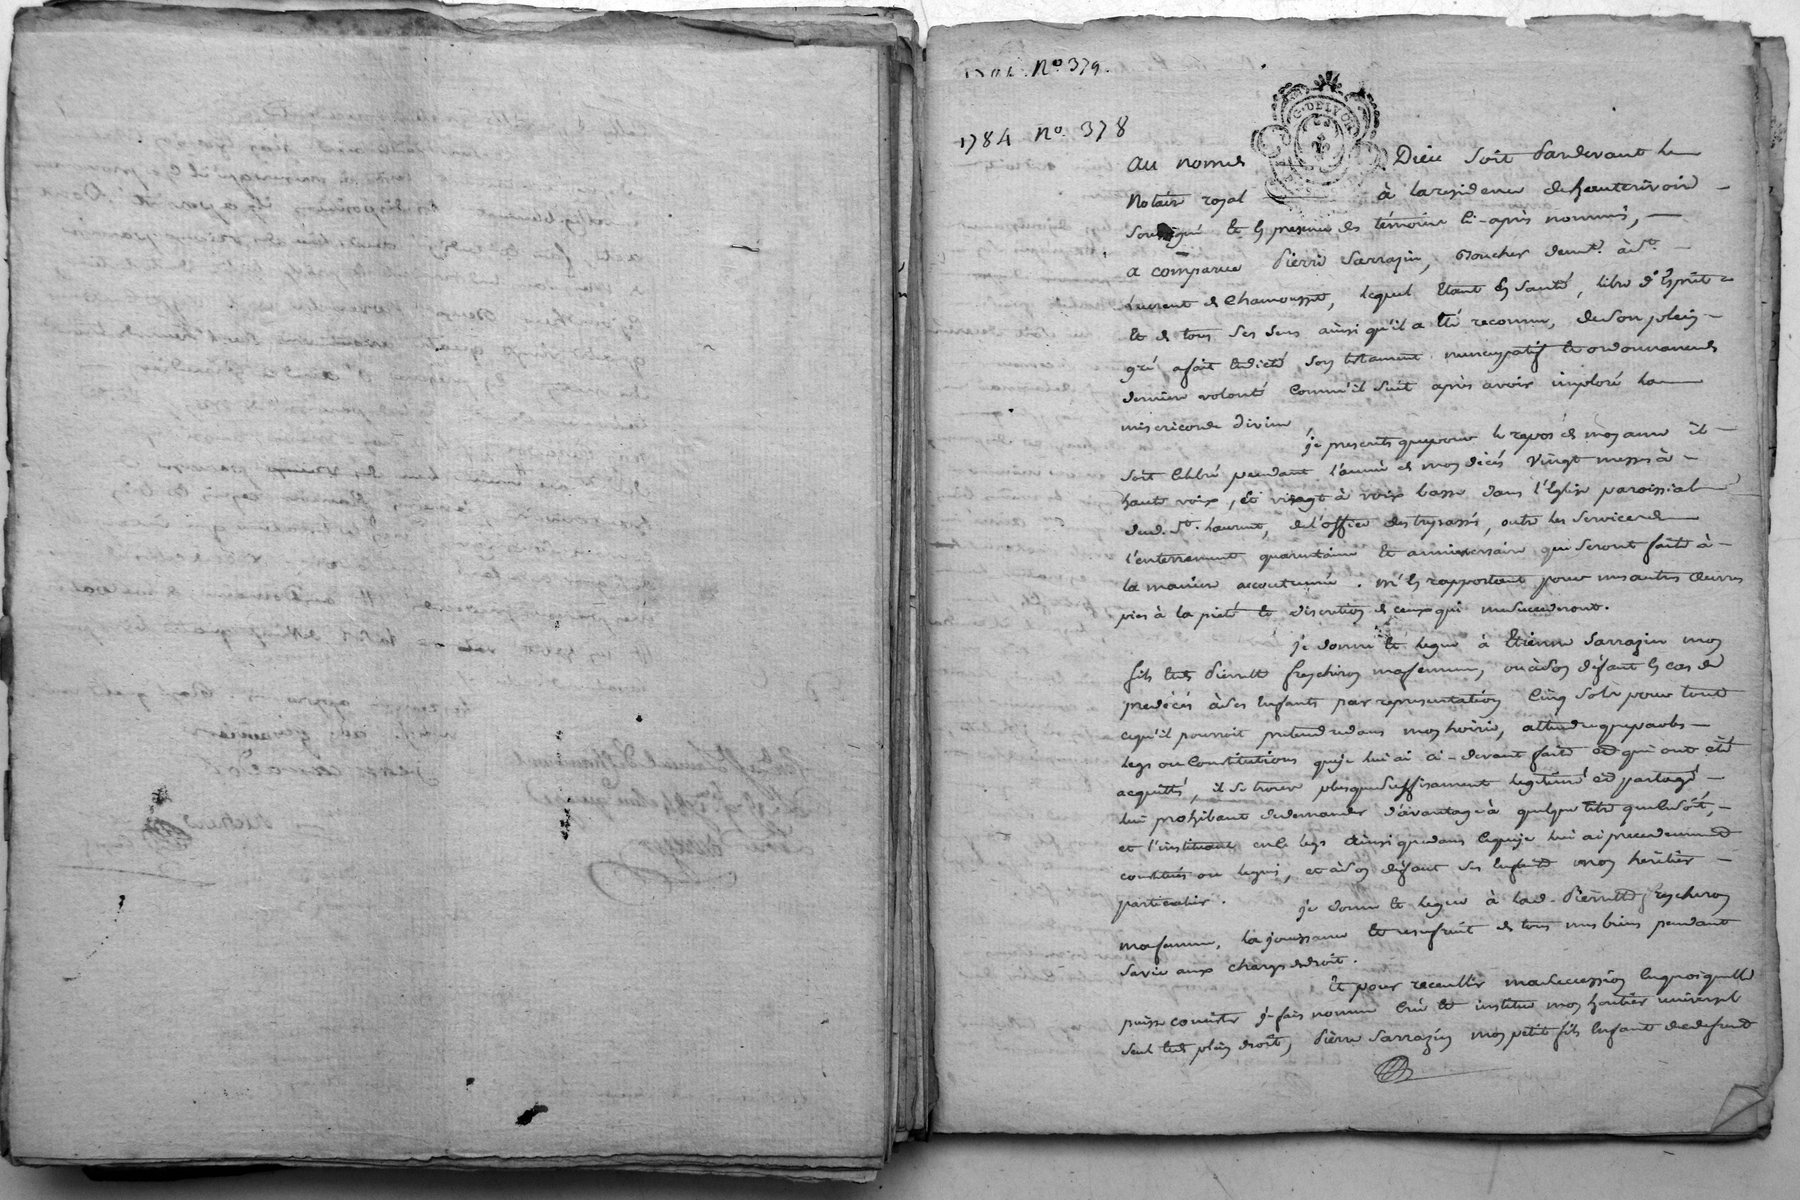 Nº 379.
1784 Nº 378
G. DE LYON
au nom de Dieu soit Pardevant le
Notaire royal à la residence de hauterivoire
soussigné et en presence des témoins ci-après nommés,
a comparu Pierre Sarrazin, Boucher demt. à St.
Laurent de Chamousset, lequel étant en santé, libre d'Esprit
et de tous ses sens ainsi qu'il a été reconnu, de son plein
gré a fait et dicté son testament nuncupatif et ordonnance de
derniere volonté comme il suit après avoir imploré la
misericorde divine,
je prescrits que pour le repos de mon ame il
soit célébré pendant l'année de mon décés vingt messes à
haute voix, et vingt à voix basse dans l'Eglise paroissiale
dud. St. Laurent, de l'office des trepassés, outre les services de
l'enterrement quarantaine et anniversaire qui seront faits à
la maniere accoutumée. m'en rapportant pour mes autres œuvres
pies à la pieté et discretion de ceux qui me succederont.
je donne et legue à Etienne Sarrazin mon
fils et de Pierrette freycheron ma femme, ou à son défaut en cas de
predécés à ses enfants par representation cinq sols pour tout
ce qu'il pourroit pretendre dans mon hoirie, attendu que par les
legs ou constitutions que je lui ai ci-devant faits et qui ont été
acquittés, il se trouve plus que suffisament legitimé et partagé
lui prohibant de demander d'avantage à quelque titre que ce soit,
et l'instituant en ce legs ainsi que dans ce que je lui ai precedemment
constitué ou legué, et à son défaut ses enfants mon heritier
particulier.
je donne et legue à lad. Pierrette freycheron
ma femme, la jouissance et usufruit de tous mes biens pendant
sa vie aux charges de droit.
et pour recueillir ma succession en quoi qu'elle
puisse consister je fais nomme crée et institue mon heritier universel
seul et de plein droit, Pierre Sarrazin mon petit fils enfant de defunt